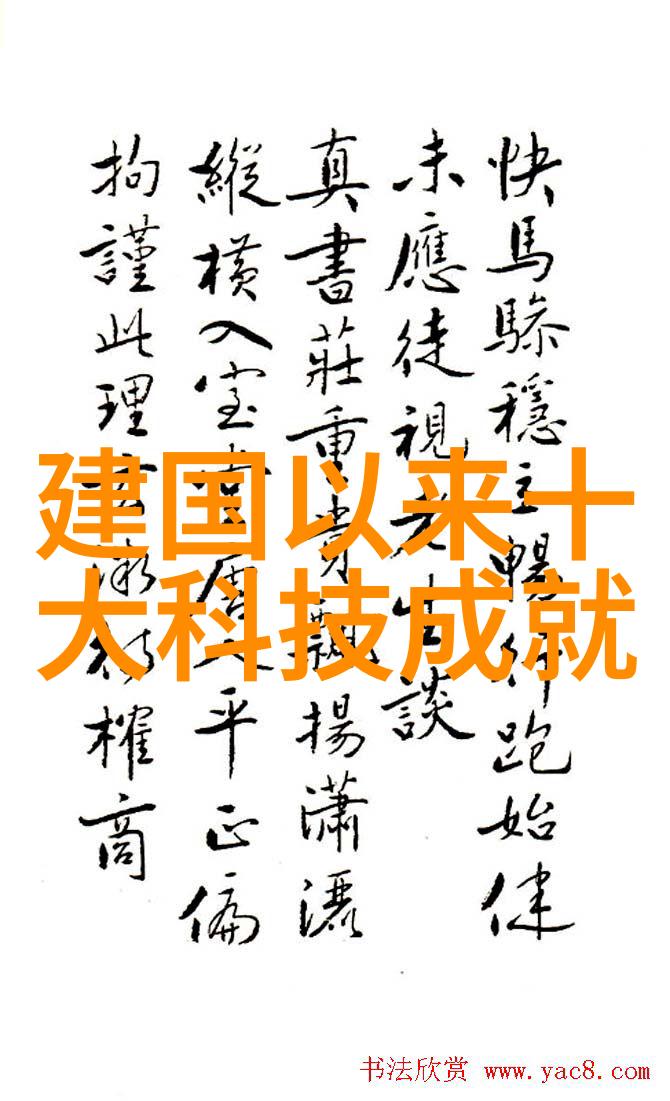 快馬穩行跑始健
未應徒視老生談
真書莊重貴飄揚瀟灑
縱橫入室平正偏
拘謹此理微待榷商
建国以来十
大科技成就
书法欣赏 www.yac8.com